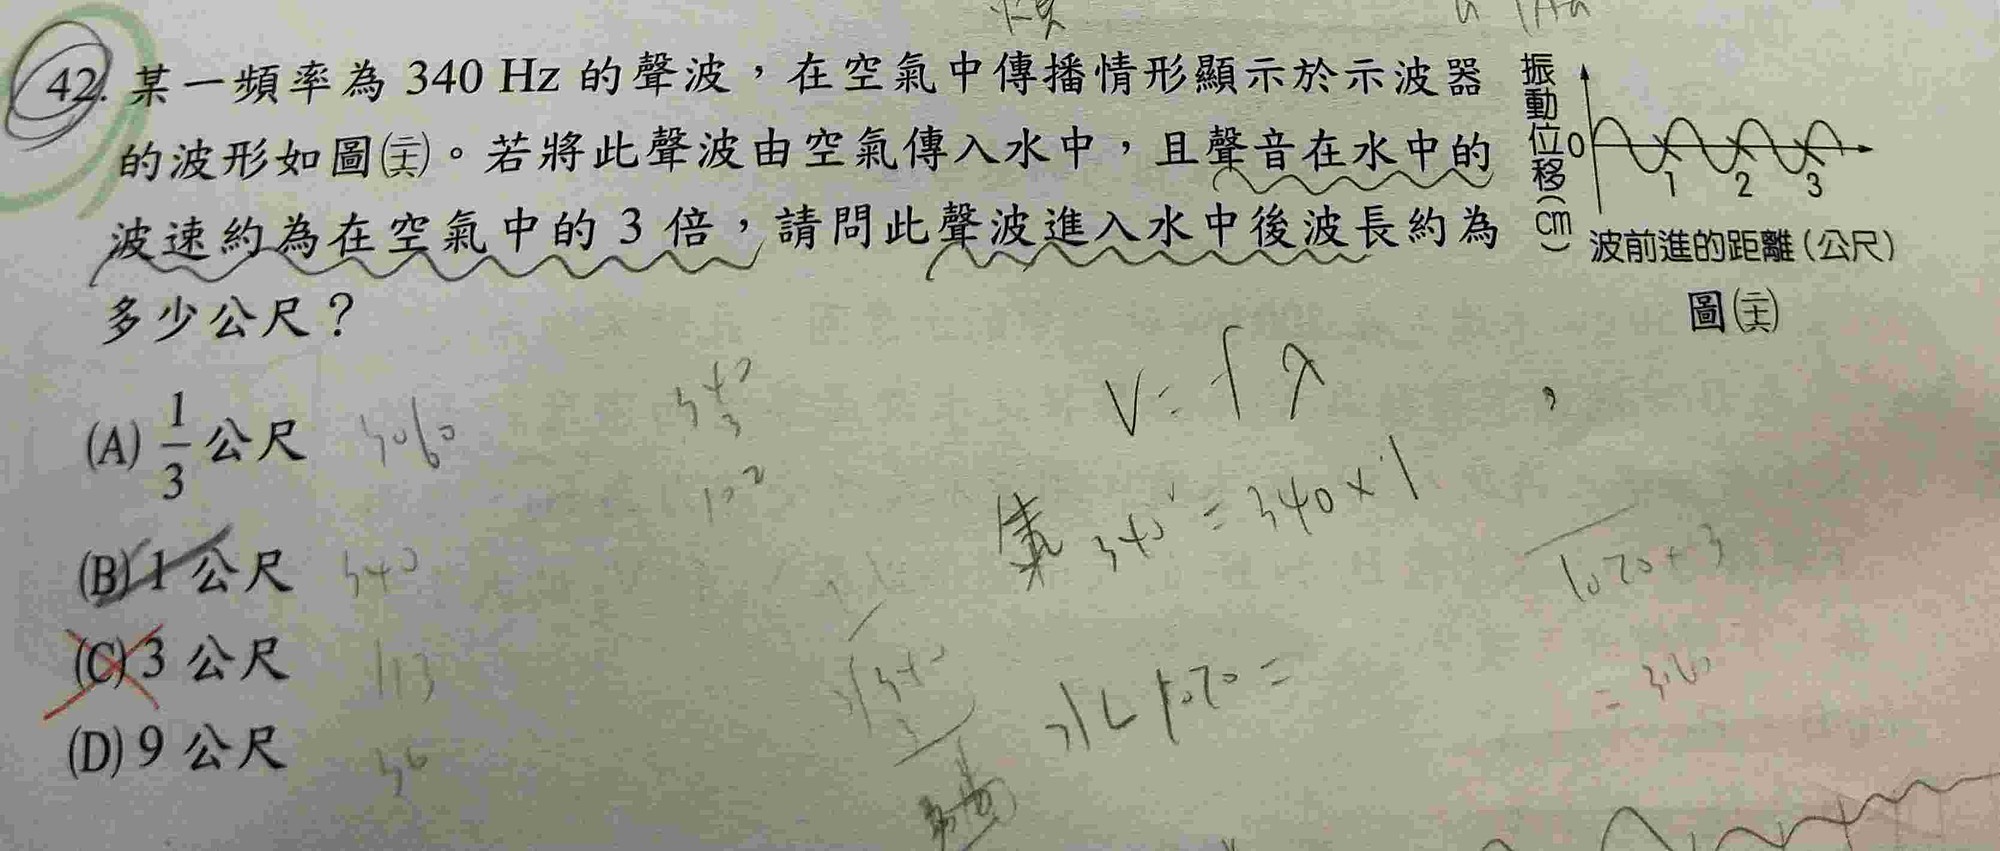 42. 某一頻率為 340 Hz 的聲波，在空氣中傳播情形顯示於示波器
的波形如圖㈩。若將此聲波由空氣傳入水中，且聲音在水中的
波速約為在空氣中的 3 倍，請問此聲波進入水中後波長約為
多少公尺？
(A) 1/3 公尺
(B) 1 公尺
(C) 3 公尺
(D) 9 公尺
振動位移(cm)
0
1 2 3
波前進的距離(公尺)
圖
V = fλ
氣 340 = 340 × 1
水 1020 =
340